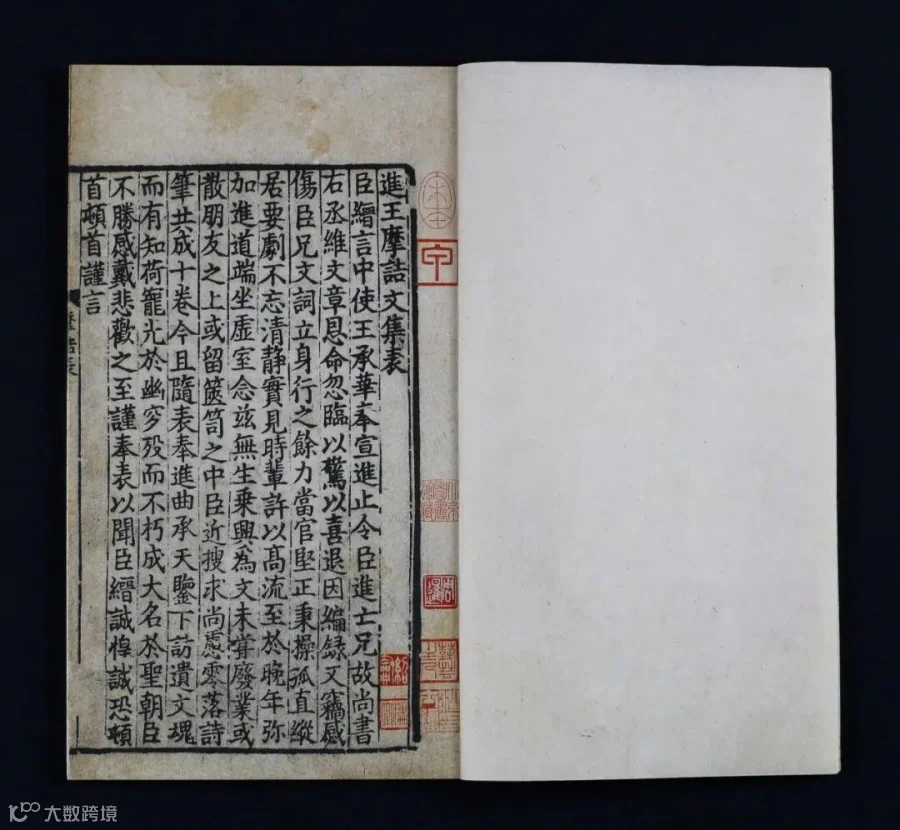 進王摩詰文集表
臣縉言中使王承華奉宣進止令臣進亡兄故尚書
右丞維文章恩命忽臨以驚以喜退因編録又竊感
傷臣兄文詞立身行之餘力當官堅正秉操孤直縱
居要劇不忘清静實見時輩許以髙流至於晚年弥
加進道端坐虚室念兹無生乗興為文未甞廢業或
散朋友之上或留篋笥之中臣近搜求尚慮零落詩
筆共成十卷今且隨表奉進曲承天鑒下訪遺文魂
而有知荷寵光於幽穸歿而不朽成大名於聖朝臣
不勝感戴悲歡之至謹奉表以聞臣縉誠惶誠恐頓
首頓首謹言
宋本
大数跨境